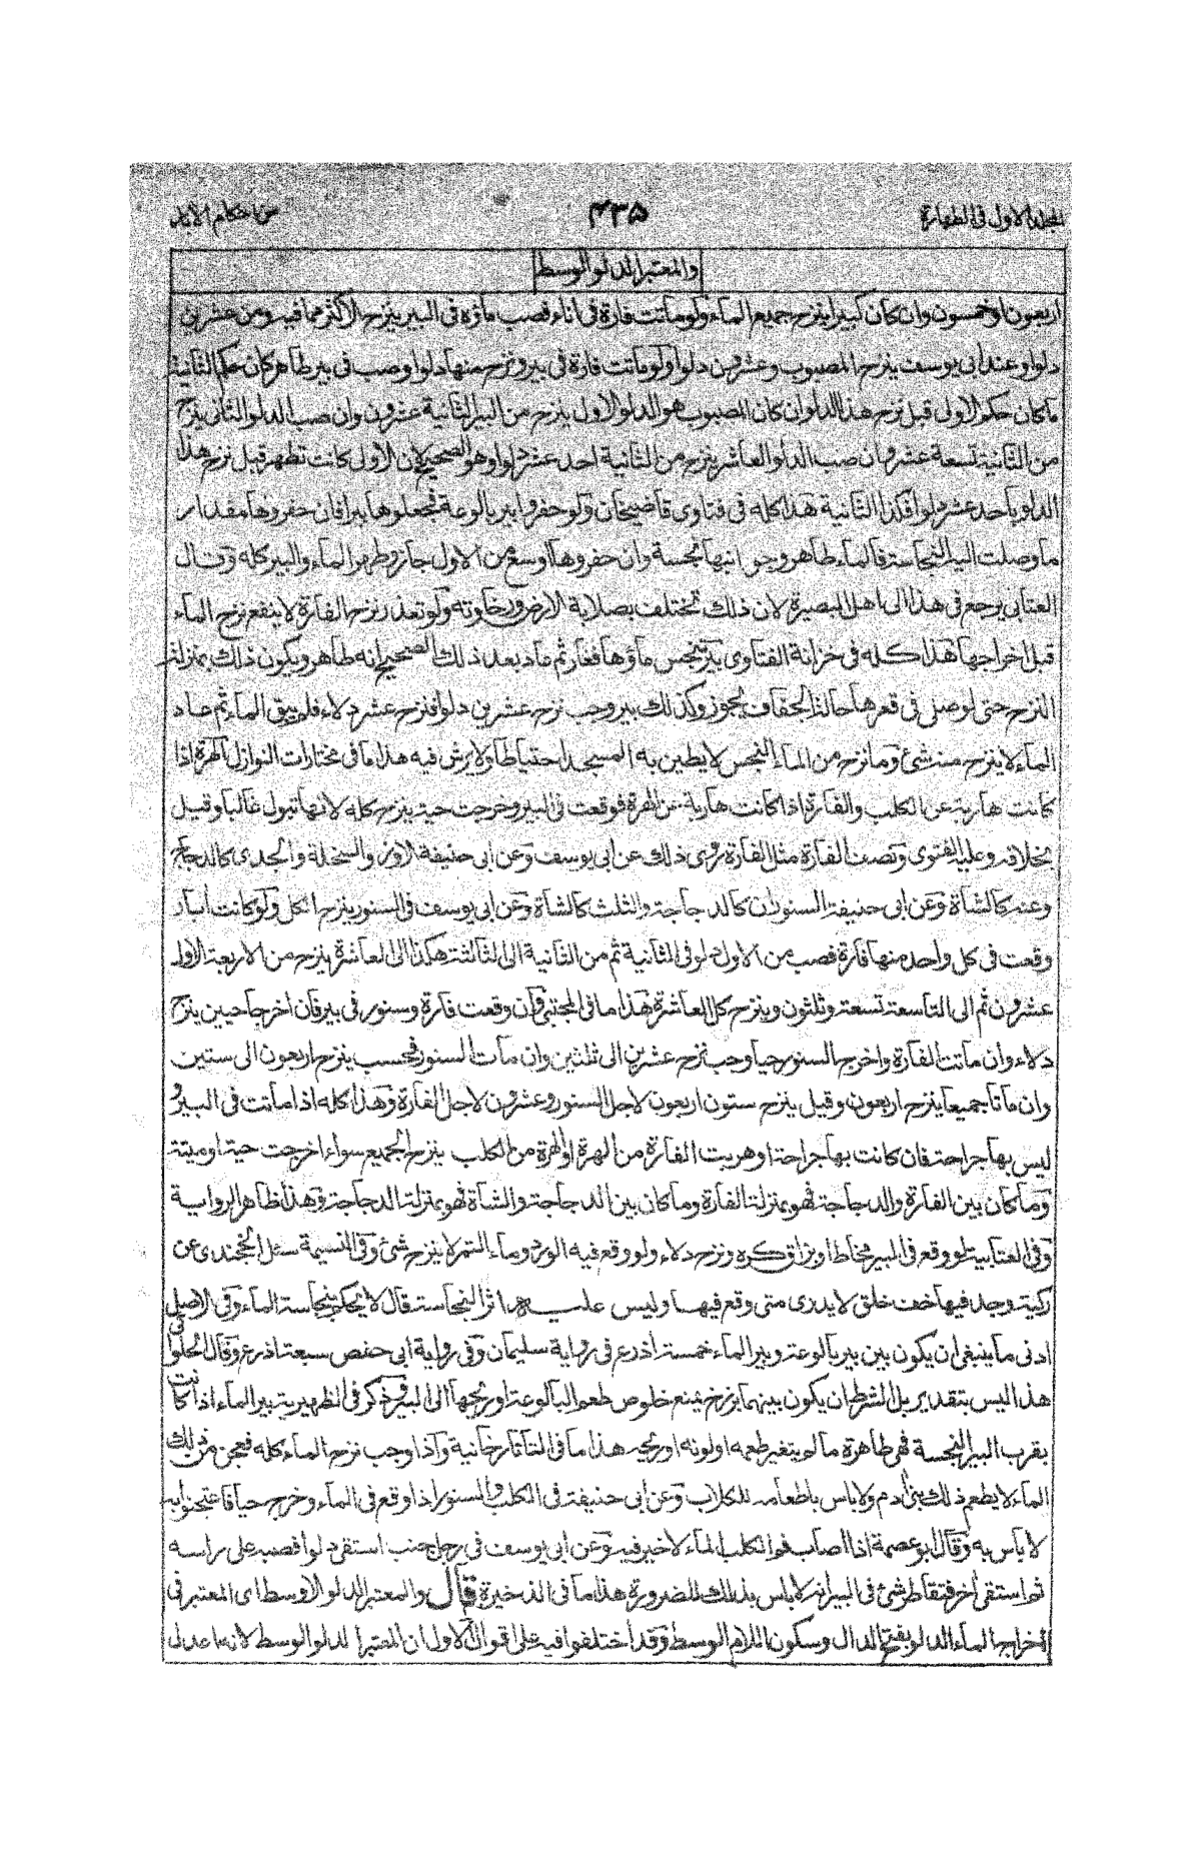 المجلد الاول فى الطهارة
٤٣٥
من احكام الابار
والمعتبر الدلو الوسط
اربعون او خمسون وان كان كبيرا ينزح جميع الماء ولو ماتت فارة فى اناء فصب ماؤه فى البير ينزح الاكثر مما فيه ومن عشرين
دلوا وعند ابى يوسف ينزح المصبوب وعشرون دلوا ولو ماتت فارة فى بير ونزح منها دلوا وصب فى بير طاهر كان حكم الثانية
ما كان حكم الاولى قبل نزح هذا الدلو ان كان المصبوب هو الدلو الاول ينزح من البير الثانية عشرون وان صب الدلو الثانى ينزح
من الثانية تسعة عشر وان صب الدلو العاشر ينزح من الثانية احد عشر دلوا وهو الصحيح لان الاولى كانت تطهر قبل نزح هذا
الدلو باحد عشر دلوا فكذا الثانية هذا كله فى فتاوى قاضيخان ولو حفروا بير بالوعة فجعلوها بيرا فان حفروها مقدار
ما وصلت اليه النجاسة فالماء طاهر وجوانبها نجسة وان حفروها اوسع من الاول جاز وطهر الماء والبير كله وقال
العتابى يرجع فى هذا الى اهل البصيرة لان ذلك تختلف بصلابة الارض ورخاوته ولو تعذر نزح الفارة لا ينفع نزح الماء
قبل اخراجها هذا كله فى خزانة الفتاوى بير تنجس ماؤها فغار ثم عاد بعد ذلك الصحيح انه طاهر ويكون ذلك بمنزلة
النزح حتى لو صلى فى قعرها حالة الجفاف يجوز وكذلك بير وجب نزح عشرين دلوا فنزح عشر دلاء فلم يبق الماء ثم عاد
الماء لا ينزح منه شئ وما نزح من الماء النجس لا يطين به المسجد احتياطا ولا يرش فيه هذا ما فى مختارات النوازل الهرة اذا
كانت هاربة عن الكلب والفارة اذا كانت هاربة عن الهرة فوقعت فى البير وخرجت حية ينزح كله لانها تبول غالبا وقيل
بخلافه وعليه الفتوى ونصف الفارة مثل الفارة روى ذلك عن ابى يوسف وعن ابى حنيفة الاوز والسخلة والجدى كالدجاج
وعنه كالشاة وعن ابى حنيفة السنوران كالدجاجة والثلث كالشاة وعن ابى يوسف فى السنور ينزح الكل ولو كانت ابار
وقعت فى كل واحد منها فارة فصب من الاولى دلو فى الثانية ثم من الثانية الى الثالثة هكذا الى العاشرة ينزح من الاربعة الاول
عشرون ثم الى التاسعة تسعة وثلثون وينزح كل العاشرة هذا ما فى المجتبى وان وقعت فارة وسنور فى بير فان اخرجا حيين ينزح
دلاء وان ماتت الفارة واخرج السنور حيا وجب نزح عشرين الى ثلثين وان مات السنور فحسب ينزح اربعون الى ستين
وان ماتا جميعا ينزح اربعون وقيل ينزح ستون اربعون لاجل السنور وعشرون لاجل الفارة وهذا كله اذا ماتت فى البير و
ليس بها جراحة فان كانت بها جراحة او هربت الفارة من الهرة او الهرة من الكلب ينزح الجميع سواء اخرجت حية او ميتة
وما كان بين الفارة والدجاجة فهو بمنزلة الفارة وما كان بين الدجاجة والشاة فهو بمنزلة الدجاجة وهذا ظاهر الرواية
وفى العتابية لو وقع فى البير مخاط او بزاق كره ونزح دلاء ولو وقع فيه الورد وماء التمر لا ينزح شئ وفى النسيمة سئل الخجندى عن
ركية وجد فيها خف خلق لا يدرى متى وقع فيها وليس عليه اثر النجاسة قال لا يحكم بنجاسة الماء وفى الاصل
ادنى ما ينبغى ان يكون بين بير بالوعة وبير الماء خمسة اذرع فى رواية سليمان وفى رواية ابى حفص سبعة اذرع وقال الحلوانى
هذا ليس بتقدير بل الشرط ان يكون بينهما برزخ يمنع خلوص طعم البالوعة او ريحها الى البير وذكر فى الظهيرية بير الماء اذا كانت
بقرب البير النجسة فهى طاهرة ما لم يتغير طعمه او لونه او ريحه هذا ما فى التاتارخانية واذا وجب نزح الماء كله فعجن من ذلك
الماء لا يطعم ذلك بنى ادم ولا باس باطعامه للكلاب وعن ابى حنيفة فى الكلب والسنور اذا وقع فى الماء وخرج حيا فاعتجنوا به
لا باس به وقال ابو عصمة اذا اصاب فم الكلب الماء لا خير فيه وعن ابى يوسف فى رجل جنب استقى دلوا فصبه على راسه
ثم استقى اخر فتقاطر شئ فى البير انه لا باس بذلك للضرورة هذا ما فى الذخيرة قال والمعتبر الدلو الاوسط اى المعتبر فى
اخراج الماء الدلو بفتح الدال وسكون اللام الوسط وقد اختلفوا فيه على اقوال الاول ان المعتبر الدلو الوسط لانه اعدل